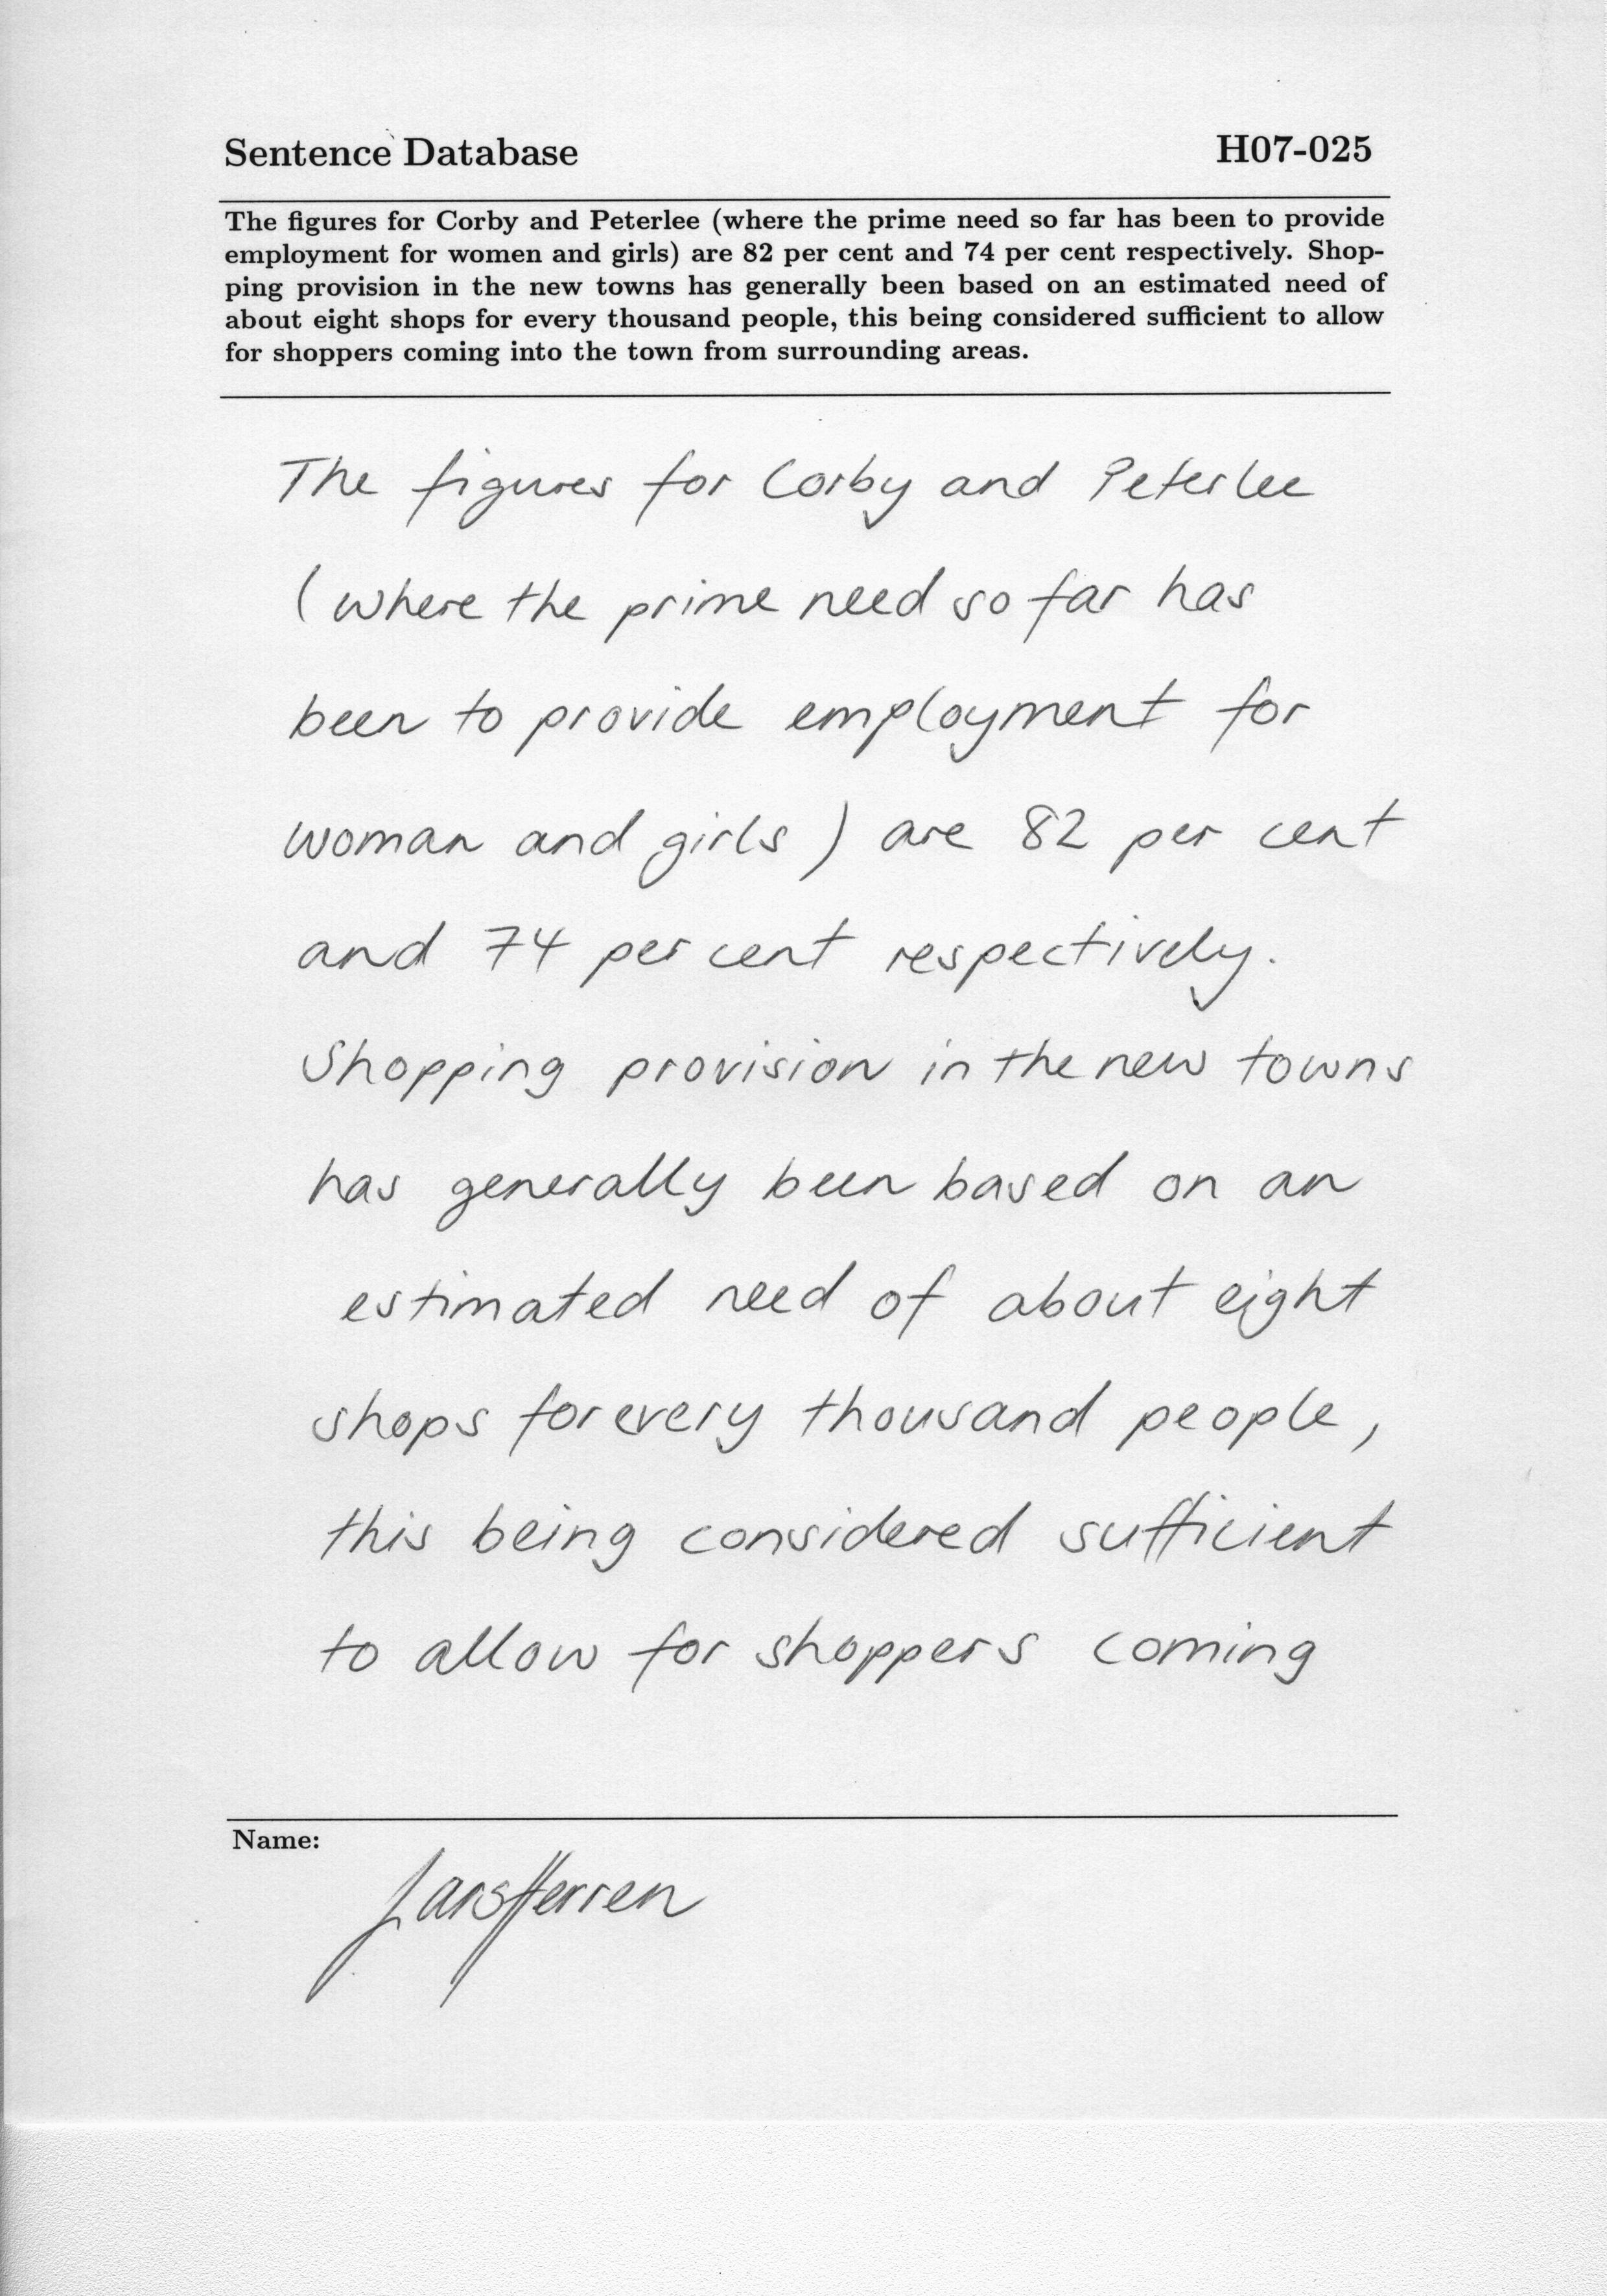 Sentence Database
H07-025
The figures for Corby and Peterlee (where the prime need so far has been to provide
employment for women and girls) are 82 per cent and 74 per cent respectively. Shop-
ping provision in the new towns has generally been based on an estimated need of
about eight shops for every thousand people, this being considered sufficient to allow
for shoppers coming into the town from surrounding areas.
The figures for Corby and Peterlee
(where the prime need so far has
been to provide employment for
woman and girls) are 82 per cent
and 74 per cent respectively.
Shopping provision in the new towns
has generally been based on an
estimated need of about eight
shops for every thousand people,
this being considered sufficient
to allow for shoppers coming
Name:
Lars Herren